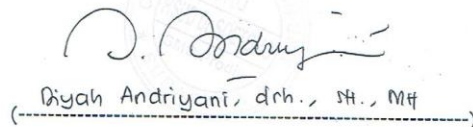 D. Andriyani
Diyah Andriyani, drh., SH., MH
(--------------------------------------------------)